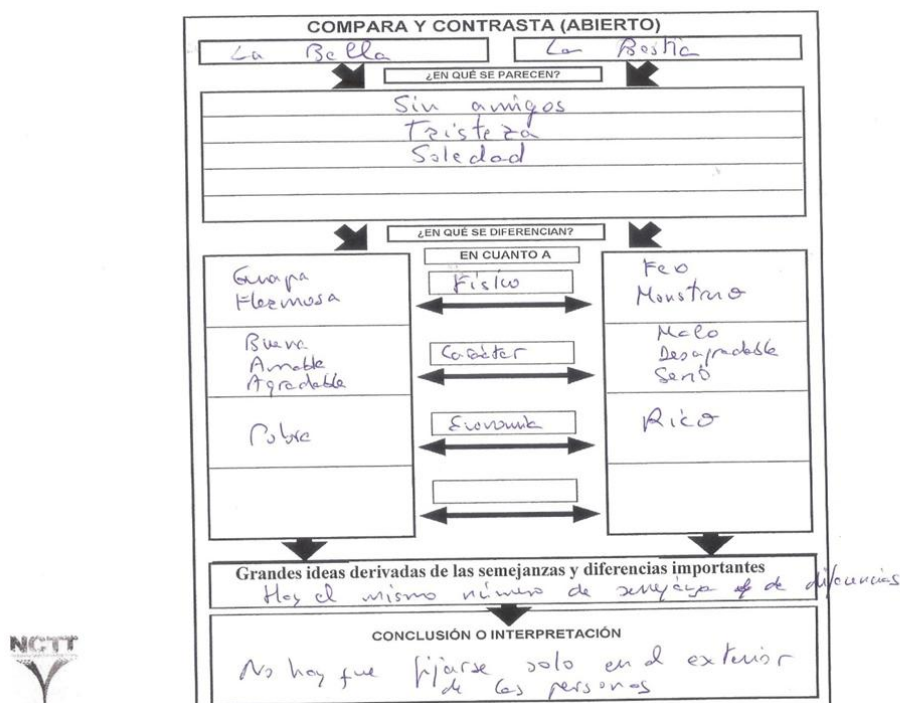 COMPARA Y CONTRASTA (ABIERTO)
La Bella
La Bestia
¿EN QUÉ SE PARECEN?
Sin amigos
Tristeza
Soledad
¿EN QUÉ SE DIFERENCIAN?
EN CUANTO A
Guapa
Hermosa
Físico
Feo
Monstruo
Buena
Amable
Agradable
Carácter
Malo
Desagradable
Serio
Pobre
Economía
Rico
Grandes ideas derivadas de las semejanzas y diferencias importantes
Hay el mismo número de semejanza de diferencias
CONCLUSIÓN O INTERPRETACIÓN
No hay que fijarse solo en el exterior
de las personas
NCTT